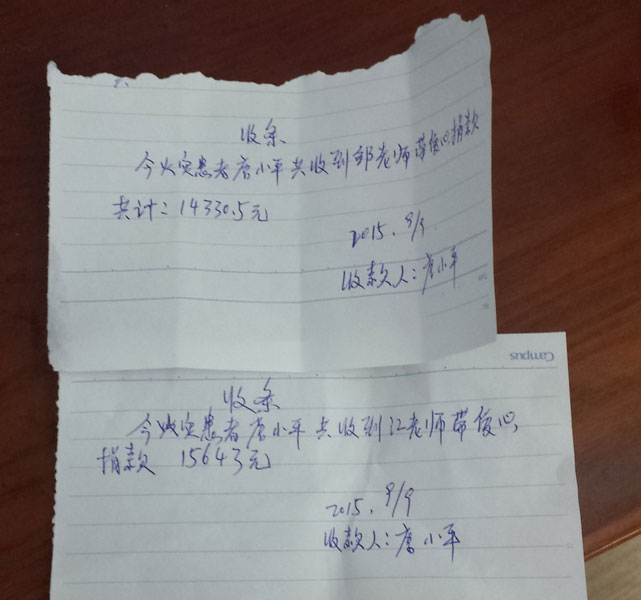 收条
今火灾患者唐小平共收到邹老师带爱心捐款
共计：14330.5元
2015.9/9.
收款人：唐小平
Campus
收条
今火灾患者唐小平共收到江老师带爱心
捐款 15643元
2015.9/9
收款人：唐小平